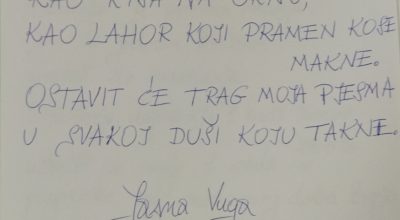 KAO KIŠA NA OKNO,
KAO LAHOR KOJI PRAMEN KOSE
MAKNE.
OSTAVIT ĆE TRAG MOJA PJESMA
U SVAKOJ DUŠI KOJU TAKNE.
Jasna Vuga